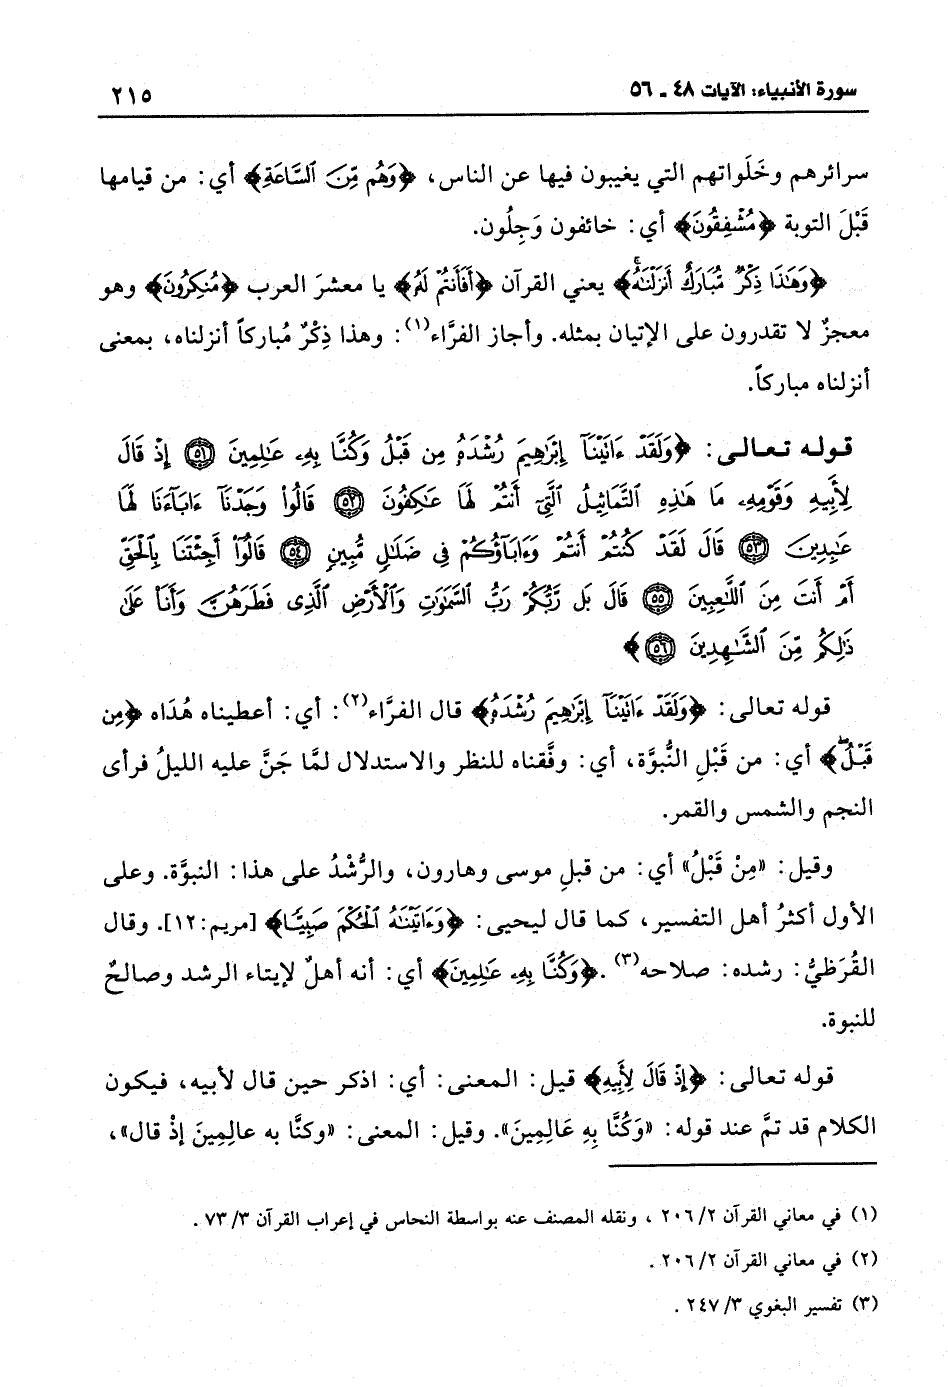 سورة الأنبياء: الآيات ٤٨ ـ ٥٦
٢١٥
سرائرهم وخَلَواتهم التي يغيبون فيها عن الناس، ﴿وَهُم مِّنَ ٱلسَّاعَةِ﴾ أي: من قيامها
قَبْلَ التوبة ﴿مُشْفِقُونَ﴾ أي: خائفون وَجِلُون.
﴿وَهَٰذَا ذِكْرٌ مُّبَارَكٌ أَنزَلْنَٰهُ﴾ يعني القرآن ﴿أَفَأَنتُمْ لَهُۥ﴾ يا معشرَ العرب ﴿مُنكِرُونَ﴾ وهو
معجزٌ لا تقدرون على الإتيان بمثله. وأجاز الفرَّاء(١): وهذا ذِكْرٌ مُباركاً أنزلناه، بمعنى
أنزلناه مباركاً.
قوله تعالى: ﴿وَلَقَدْ ءَاتَيْنَآ إِبْرَٰهِيمَ رُشْدَهُۥ مِن قَبْلُ وَكُنَّا بِهِۦ عَٰلِمِينَ ۝٥١ إِذْ قَالَ
لِأَبِيهِ وَقَوْمِهِۦ مَا هَٰذِهِ ٱلتَّمَاثِيلُ ٱلَّتِىٓ أَنتُمْ لَهَا عَٰكِفُونَ ۝٥٢ قَالُوا۟ وَجَدْنَآ ءَابَآءَنَا لَهَا
عَٰبِدِينَ ۝٥٣ قَالَ لَقَدْ كُنتُمْ أَنتُمْ وَءَابَآؤُكُمْ فِى ضَلَٰلٍ مُّبِينٍ ۝٥٤ قَالُوٓا۟ أَجِئْتَنَا بِٱلْحَقِّ
أَمْ أَنتَ مِنَ ٱللَّٰعِبِينَ ۝٥٥ قَالَ بَل رَّبُّكُمْ رَبُّ ٱلسَّمَٰوَٰتِ وَٱلْأَرْضِ ٱلَّذِى فَطَرَهُنَّ وَأَنَا۠ عَلَىٰ
ذَٰلِكُم مِّنَ ٱلشَّٰهِدِينَ ۝٥٦﴾
قوله تعالى: ﴿وَلَقَدْ ءَاتَيْنَآ إِبْرَٰهِيمَ رُشْدَهُۥ﴾ قال الفرَّاء(٢): أي: أعطيناه هُدَاه ﴿مِن
قَبْلُ﴾ أي: من قَبْلِ النُّبوَّة، أي: وفَّقناه للنظر والاستدلال لمَّا جَنَّ عليه الليلُ فرأى
النجم والشمس والقمر.
وقيل: «مِنْ قَبْلُ» أي: من قبلِ موسى وهارون، والرُّشْدُ على هذا: النبوَّة. وعلى
الأول أكثرُ أهل التفسير، كما قال ليحيى: ﴿وَءَاتَيْنَٰهُ ٱلْحُكْمَ صَبِيًّا﴾ [مريم:١٢]. وقال
القُرَظيُّ: رشده: صلاحه(٣). ﴿وَكُنَّا بِهِۦ عَٰلِمِينَ﴾ أي: أنه أهلٌ لإيتاء الرشد وصالحٌ
للنبوة.
قوله تعالى: ﴿إِذْ قَالَ لِأَبِيهِ﴾ قيل: المعنى: أي: اذكر حين قال لأبيه، فيكون
الكلام قد تمَّ عند قوله: «وَكُنَّا بِهِ عَالِمِينَ». وقيل: المعنى: «وكنَّا به عالِمِينَ إذْ قال»،
(١) في معاني القرآن ٢/ ٢٠٦ ، ونقله المصنف عنه بواسطة النحاس في إعراب القرآن ٣/ ٧٣ .
(٢) في معاني القرآن ٢/ ٢٠٦ .
(٣) تفسير البغوي ٣/ ٢٤٧ .